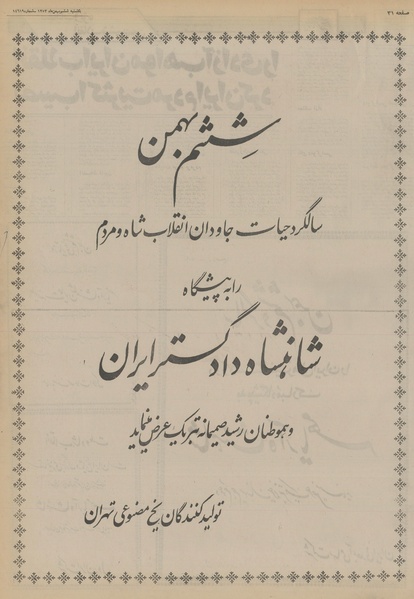 صفحه ۲۶
ششم بهمن
سالگرد حیات جاودان انقلاب شاه و مردم
را به پیشگاه
شاهنشاه دادگستر ایران
و هموطنان رشید صمیمانه تبریک عرض مینماید
تولیدکنندگان یخ مصنوعی تهران